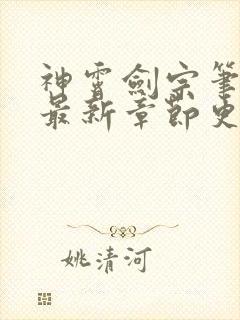 神霄劍宗筆
最新章節史
姚清河